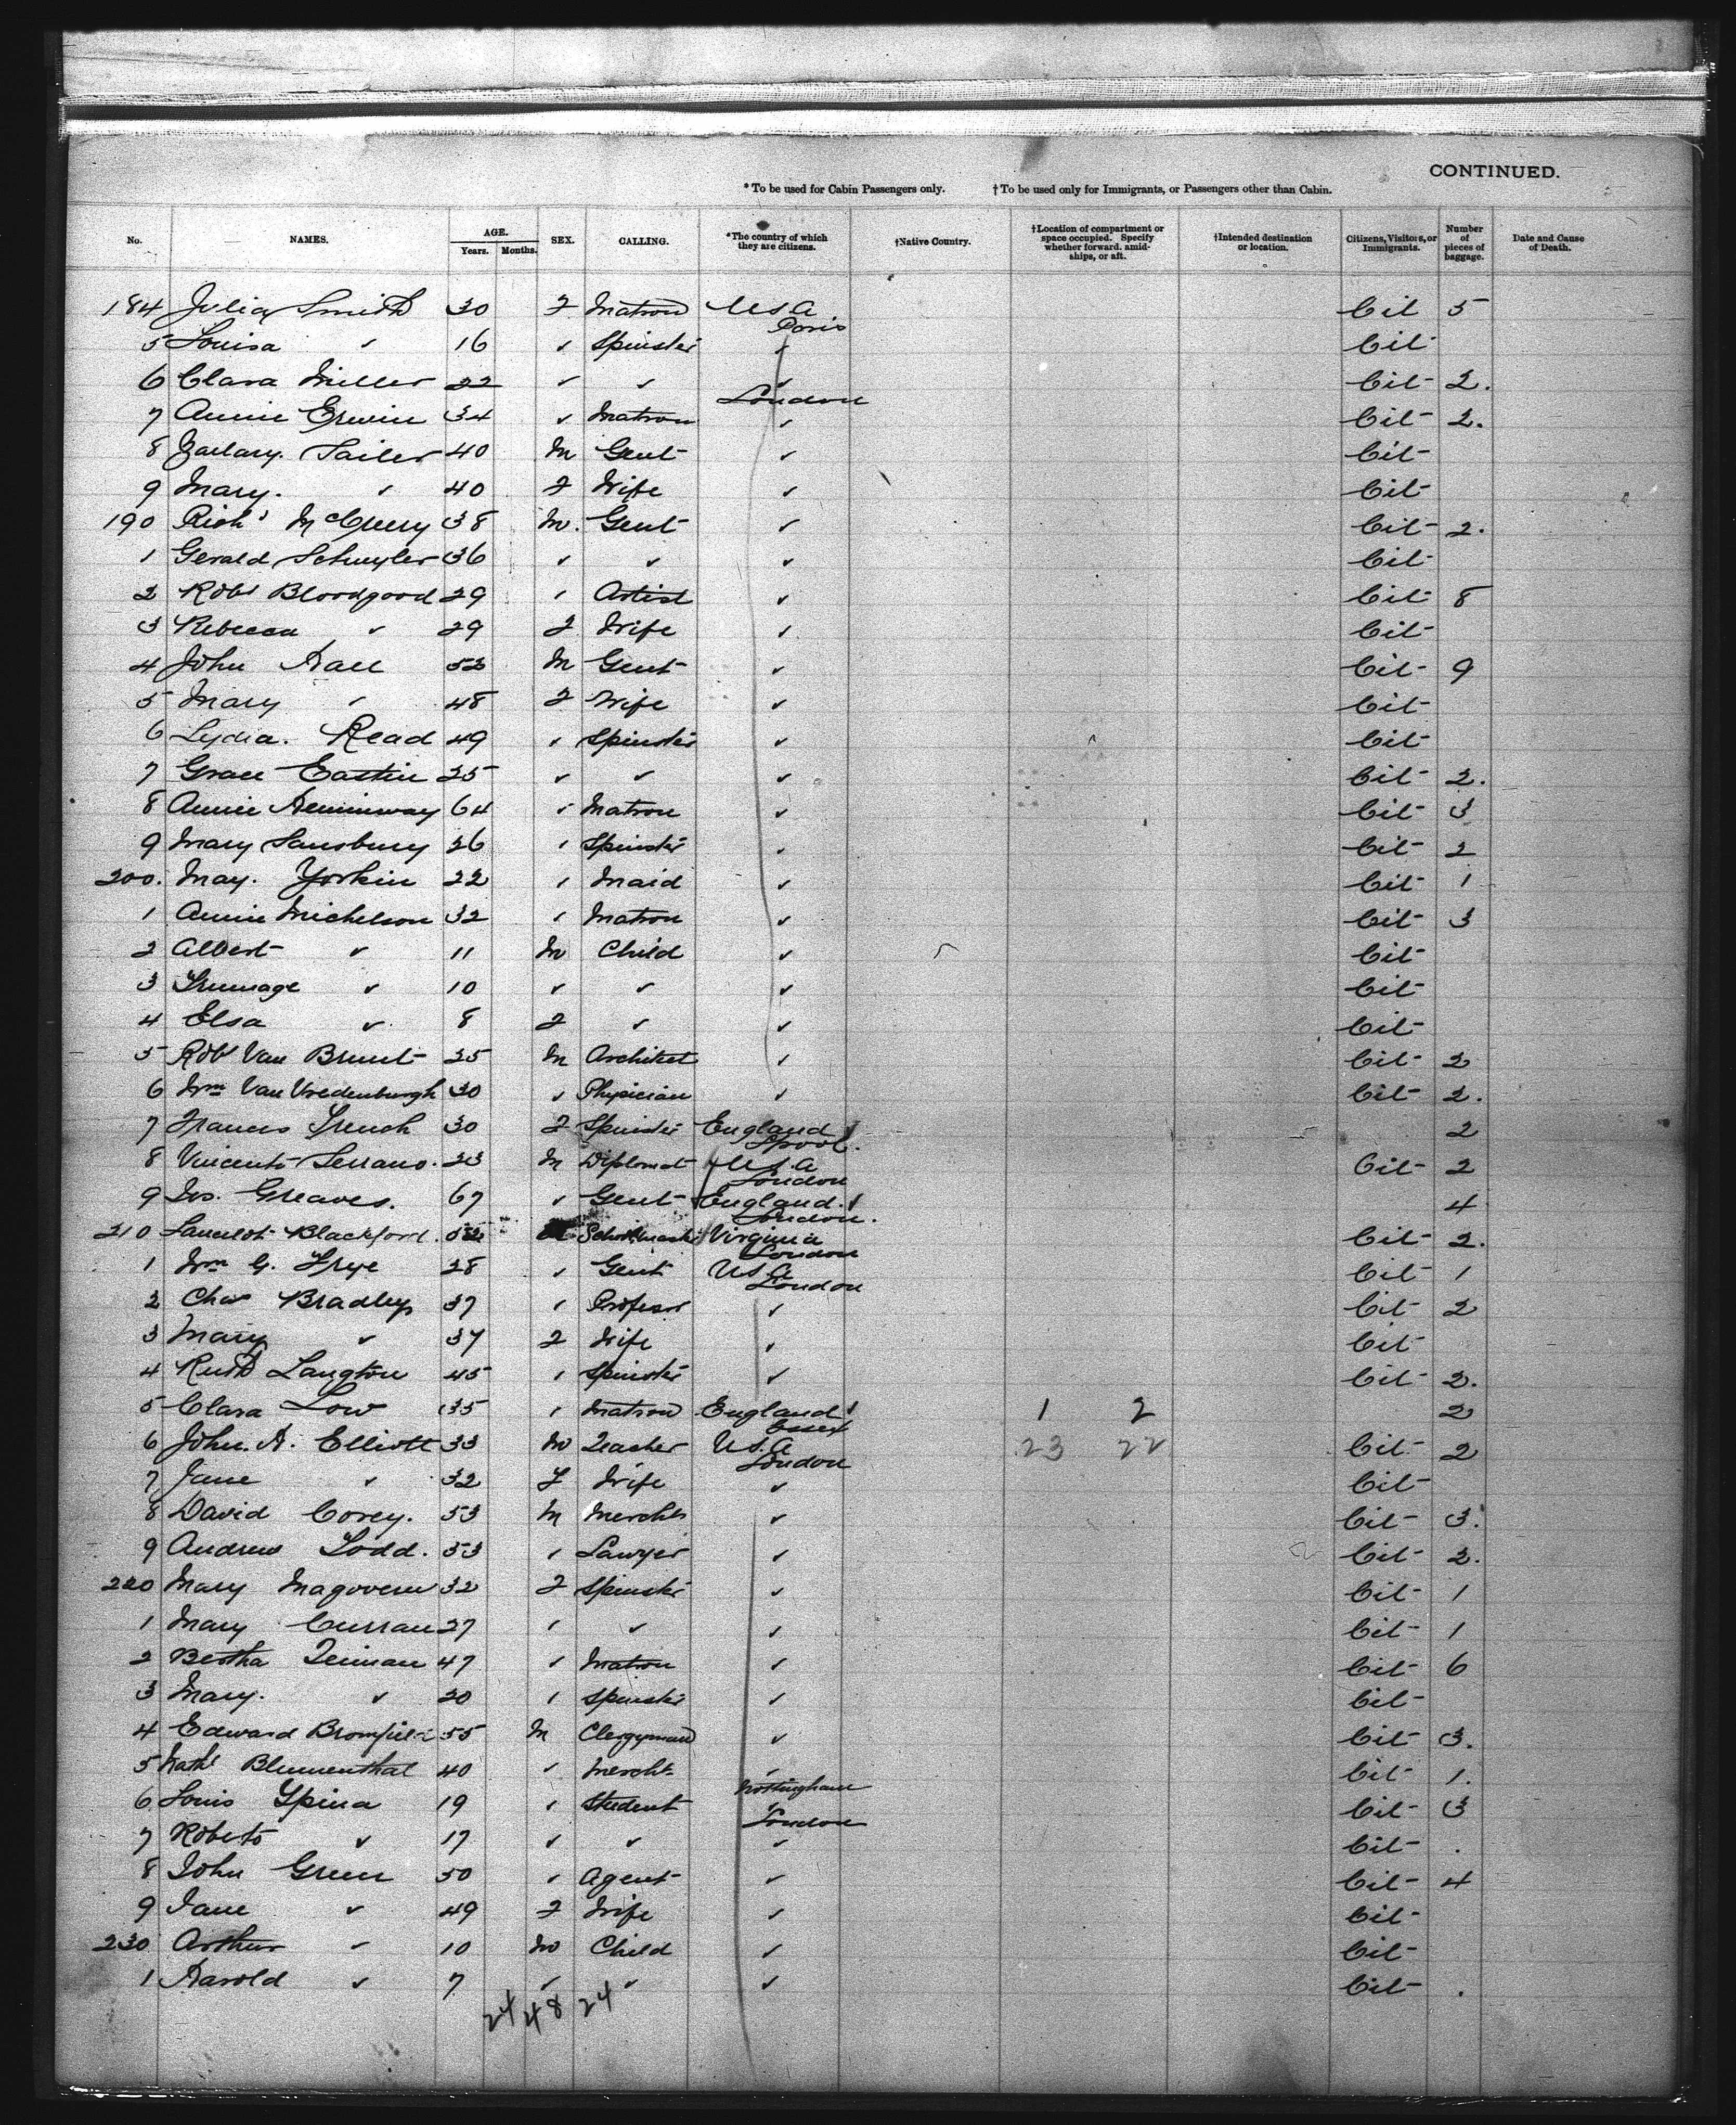 CONTINUED.
* To be used for Cabin Passengers only. † To be used only for Immigrants, or Passengers other than Cabin.
No. NAMES. AGE. Years. Months. SEX. CALLING. *The country of which they are citizens. †Native Country. †Location of compartment or space occupied. Specify whether forward, amidships, or aft. †Intended destination or location. Citizens, Visitors, or Immigrants. Number of pieces of baggage. Date and Cause of Death.
184 Julia Smith 30 F Matron U.S.A Cit 5
Paris
5 Louisa " 16 " Spinster " Cit
6 Clara Miller 22 " " " Cit 2.
London
7 Annie Erwin 34 " Matron " Cit 2.
8 Sailer 40 M Gent " Cit
9 Mary. " 40 F Wife " Cit
190 Richd McCreery 38 M. Gent " Cit 2.
1 Gerald Schuyler 36 " " " Cit
2 Robt Bloodgood 29 " Artist " Cit 8
3 Rebecca " 29 F Wife " Cit
4 John Hall 52 M Gent " Cit 9
5 Mary " 48 F Wife " Cit
6 Lydia. Read 49 " Spinster " Cit
7 Grace Eastin 25 " " " Cit 2.
8 Annie Hemimway 64 " Matron " Cit 3
9 Mary Sansbury 26 " Spinster " Cit 2
200. May. Yorkin 22 " Maid " Cit 1
1 Annie Michelson 32 " Matron " Cit 3
2 Albert " 11 M Child " Cit
3 " 10 " " " Cit
4 Elsa " 8 F " " Cit
5 Robt Van Brunt 25 M Architect " Cit 2
6 Wm Van Vredenburgh 30 " Physician " Cit 2.
7 Frances French 30 F Spinster England 2
Lpool.
8 Vincente Serrano. 23 M Diplomat U.S.A Cit 2
London
9 Jos. Greaves. 67 " Gent England. 4
London.
210 Lancelot Blackford. 52 Schoolmaster Virginia Cit 2.
London
1 Wm G. Frye 28 " Gent U.S.A Cit 1
London
2 Chas Bradley 37 " Professor " Cit 2
3 Mary " 37 F Wife " Cit
4 Ruth Langton 45 " Spinster " Cit 2.
5 Clara Low 35 " Matron England 1 2 2
Essex
6 John. H. Elliott 33 M Teacher U.S.A 23 22 Cit 2
London
7 Jane " 32 F Wife " Cit
8 David Corey. 53 M Mercht " Cit 3.
9 Andrew Todd. 53 " Lawyer " Cit 2.
220 Mary Magovern 32 F Spinster " Cit 1
1 Mary Curran 27 " " " Cit 1
2 Bertha Teiman 47 " Matron " Cit 6
3 Mary. " 20 " Spinster " Cit
4 Edward Bromfield 55 M Clergyman " Cit 3.
5 Nathl Blumenthal 40 " Mercht " Cit 1.
Nottingham
6 Louis Yspina 19 " Student " Cit 3
London
7 Roberto " 17 " " " Cit .
8 John Green 50 " Agent " Cit 4
9 Jane " 49 F Wife " Cit
230 Arthur " 10 M Child " Cit
1 Harold " 7 " " " Cit .
24 48 24